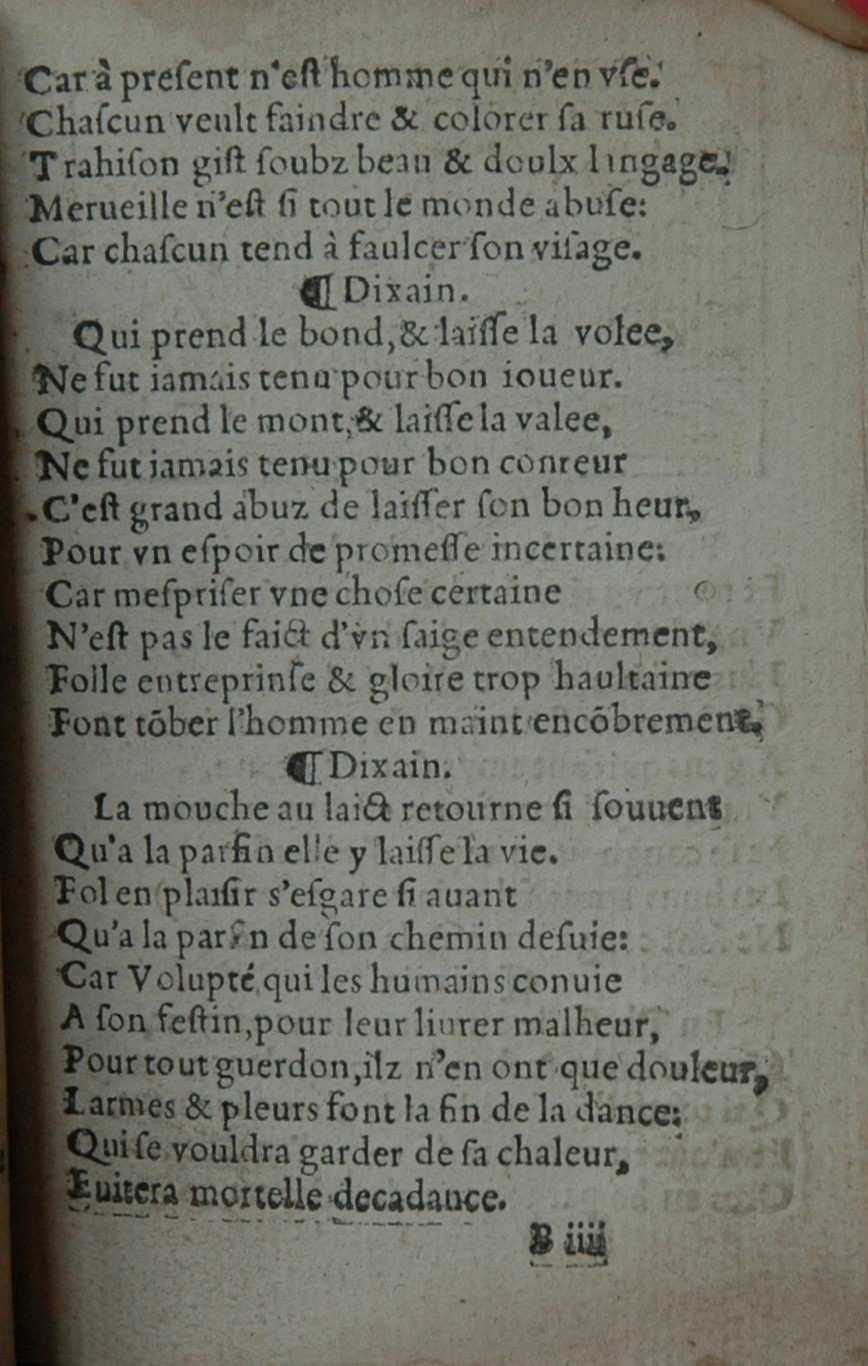 Car à preſent n'eſt homme qui n'en vſe.
Chaſcun veult faindre & colorer ſa ruſe.
Trahiſon giſt ſoubz beau & doulx lingage.
Merueille n'eſt ſi tout le monde abuſe:
Car chaſcun tend à faulcer ſon viſage.
¶ Dixain.
Qui prend le bond, & laiſſe la volee,
Ne fut iamais tenu pour bon ioueur.
Qui prend le mont, & laiſſe la valee,
Ne fut iamais tenu pour bon coureur
C'eſt grand abuz de laiſſer ſon bon heur,
Pour vn eſpoir de promeſſe incertaine:
Car meſpriſer vne choſe certaine
N'eſt pas le faict d'vn ſaige entendement,
Folle entreprinſe & gloire trop haultaine
Font tõber l'homme en maint encõbrement.
¶ Dixain.
La mouche au laict retourne ſi ſouuent
Qu'a la parfin elle y laiſſe la vie.
Fol en plaiſir s'eſgare ſi auant
Qu'a la parfin de ſon chemin deſuie:
Car Volupté, qui les humains conuie
A ſon feſtin, pour leur liurer malheur,
Pour tout guerdon, ilz n'en ont que douleur,
Larmes & pleurs ſont la fin de la dance:
Qui ſe vouldra garder de ſa chaleur,
Euitera mortelle decadance.
B iiij